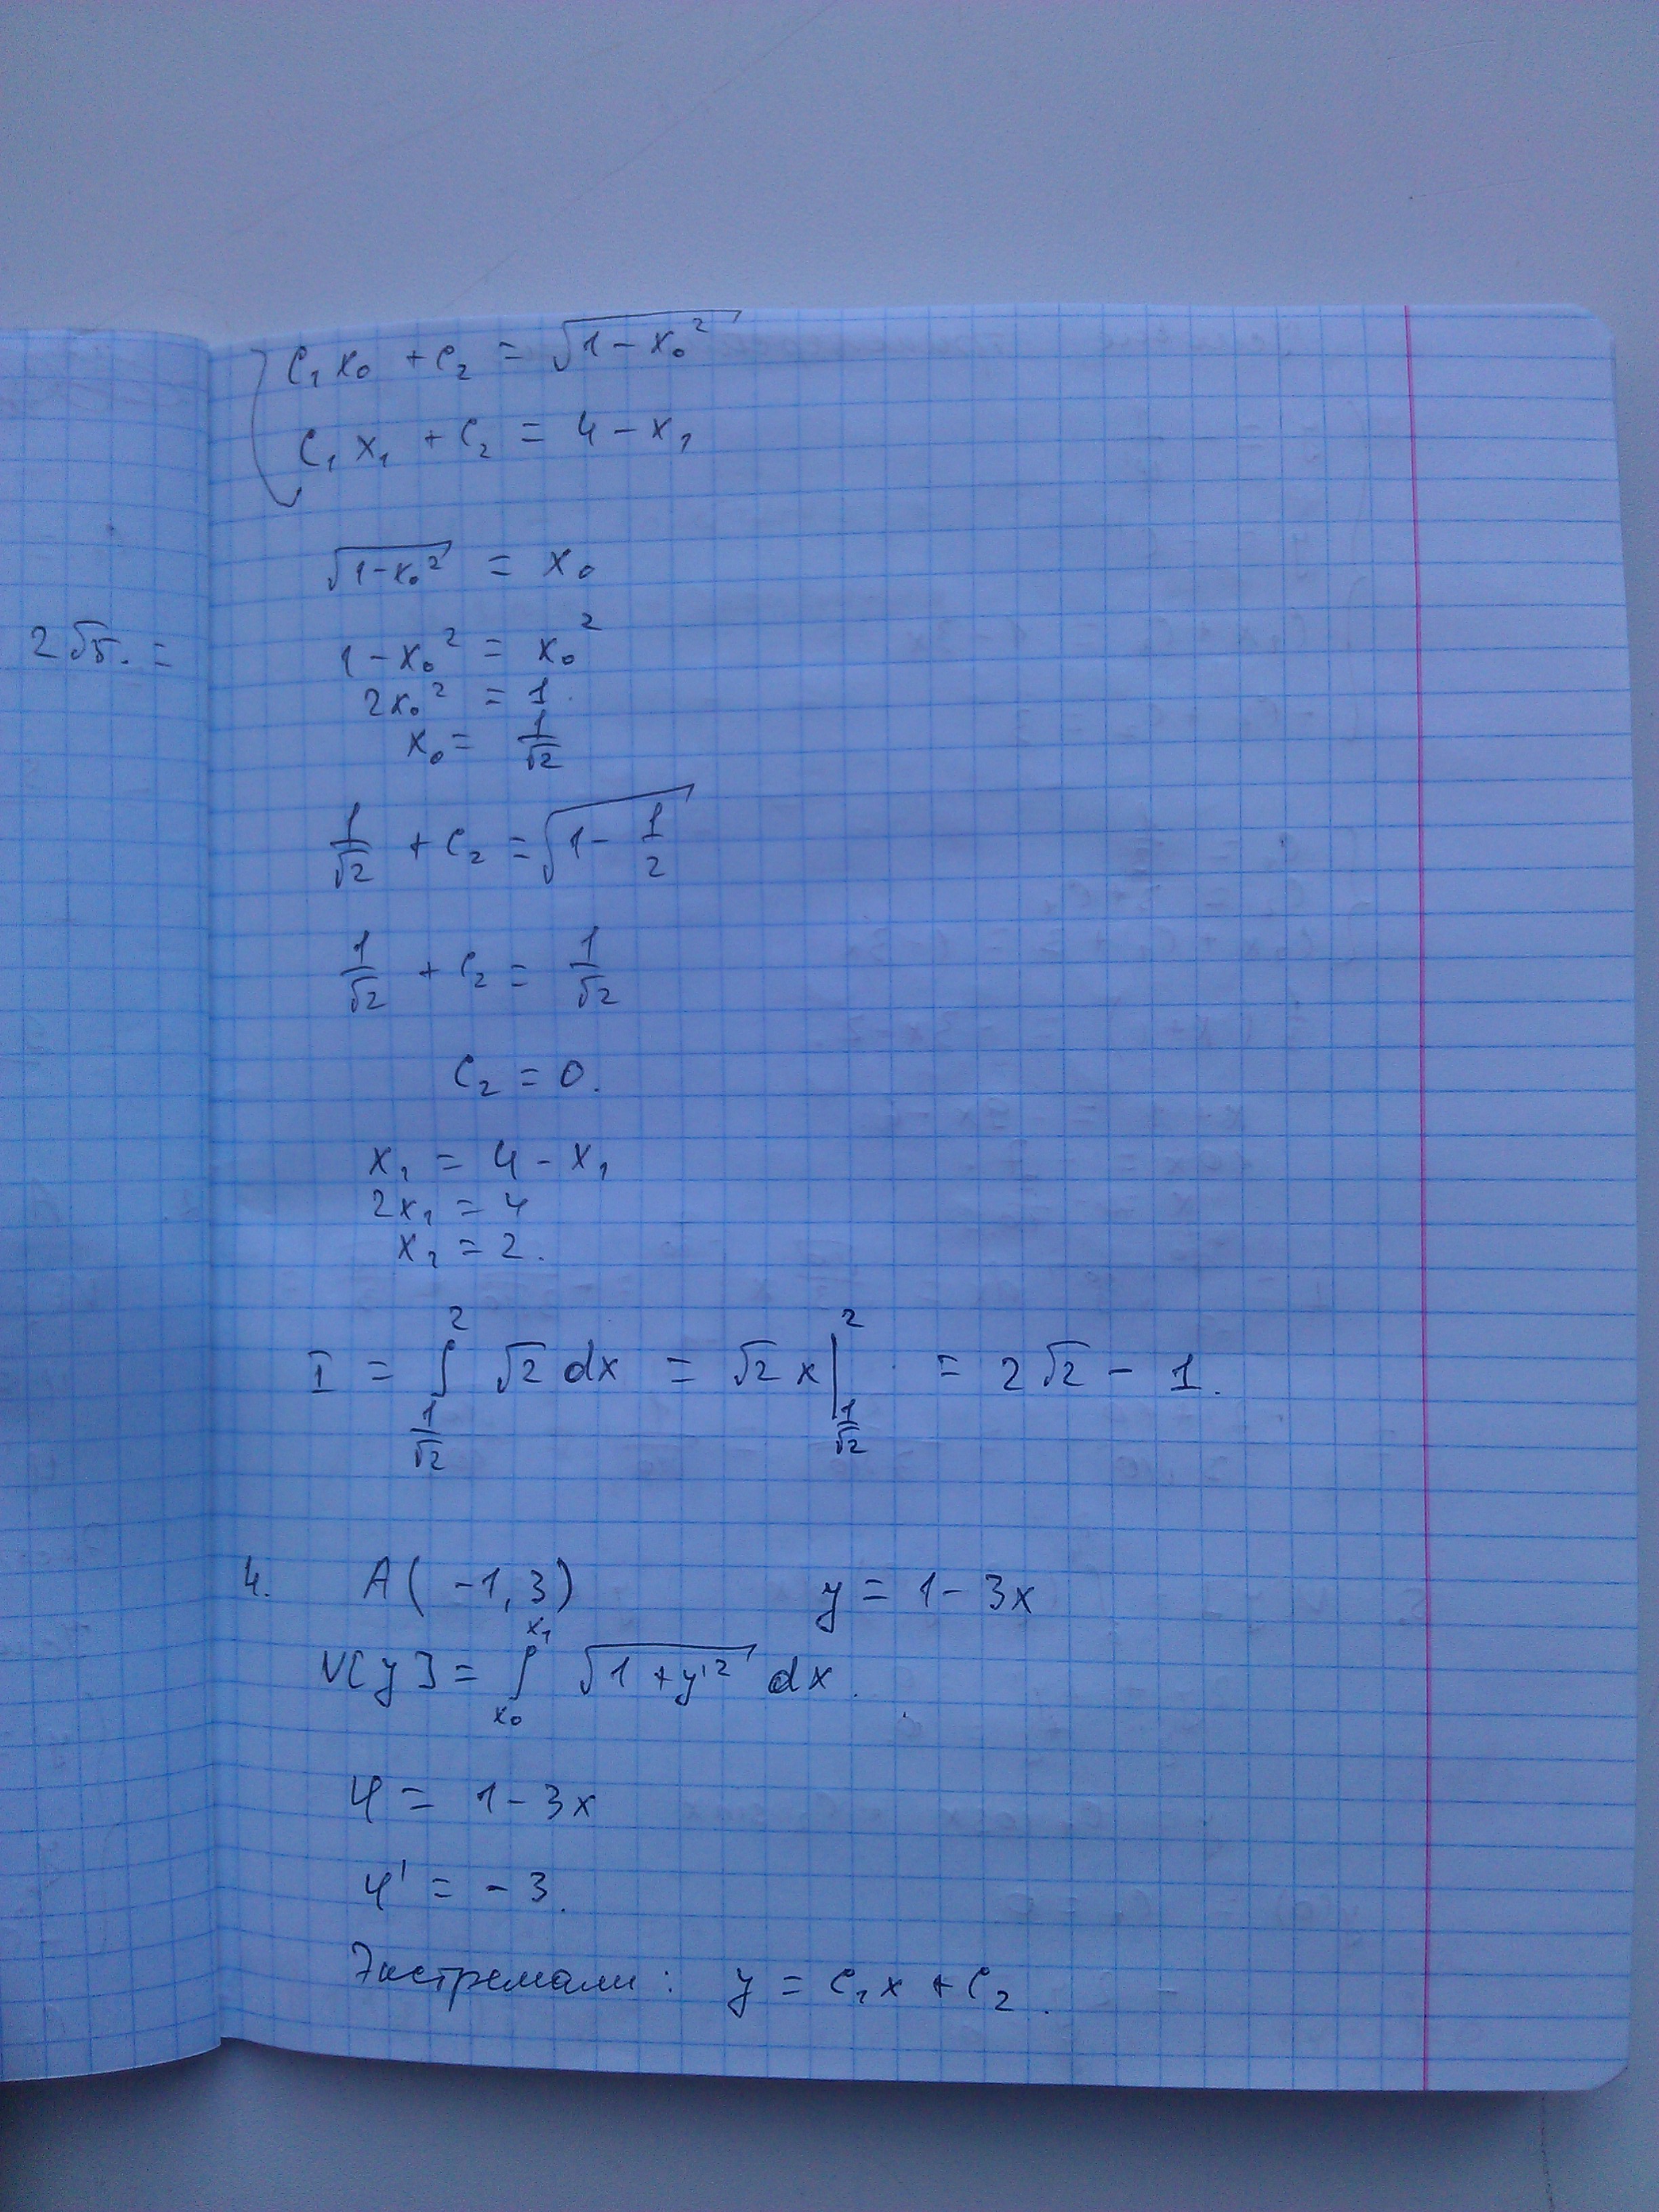 2√5. =
C₁x₀ + C₂ = √(1 - x₀²)
C₁x₁ + C₂ = 4 - x₁
√(1-x₀²) = x₀
1 - x₀² = x₀²
2x₀² = 1.
x₀ = 1/√2
1/√2 + C₂ = √(1 - 1/2)
1/√2 + C₂ = 1/√2
C₂ = 0.
x₁ = 4 - x₁
2x₁ = 4
x₁ = 2.
I = ∫_{1/√2}^{2} √2 dx = √2 x |_{1/√2}^{2} = 2√2 - 1.
4. A(-1, 3) y = 1 - 3x
V[y] = ∫_{x₀}^{x₁} √(1 + y'²) dx.
φ = 1 - 3x
φ' = -3.
Экстремали: y = C₁x + C₂.